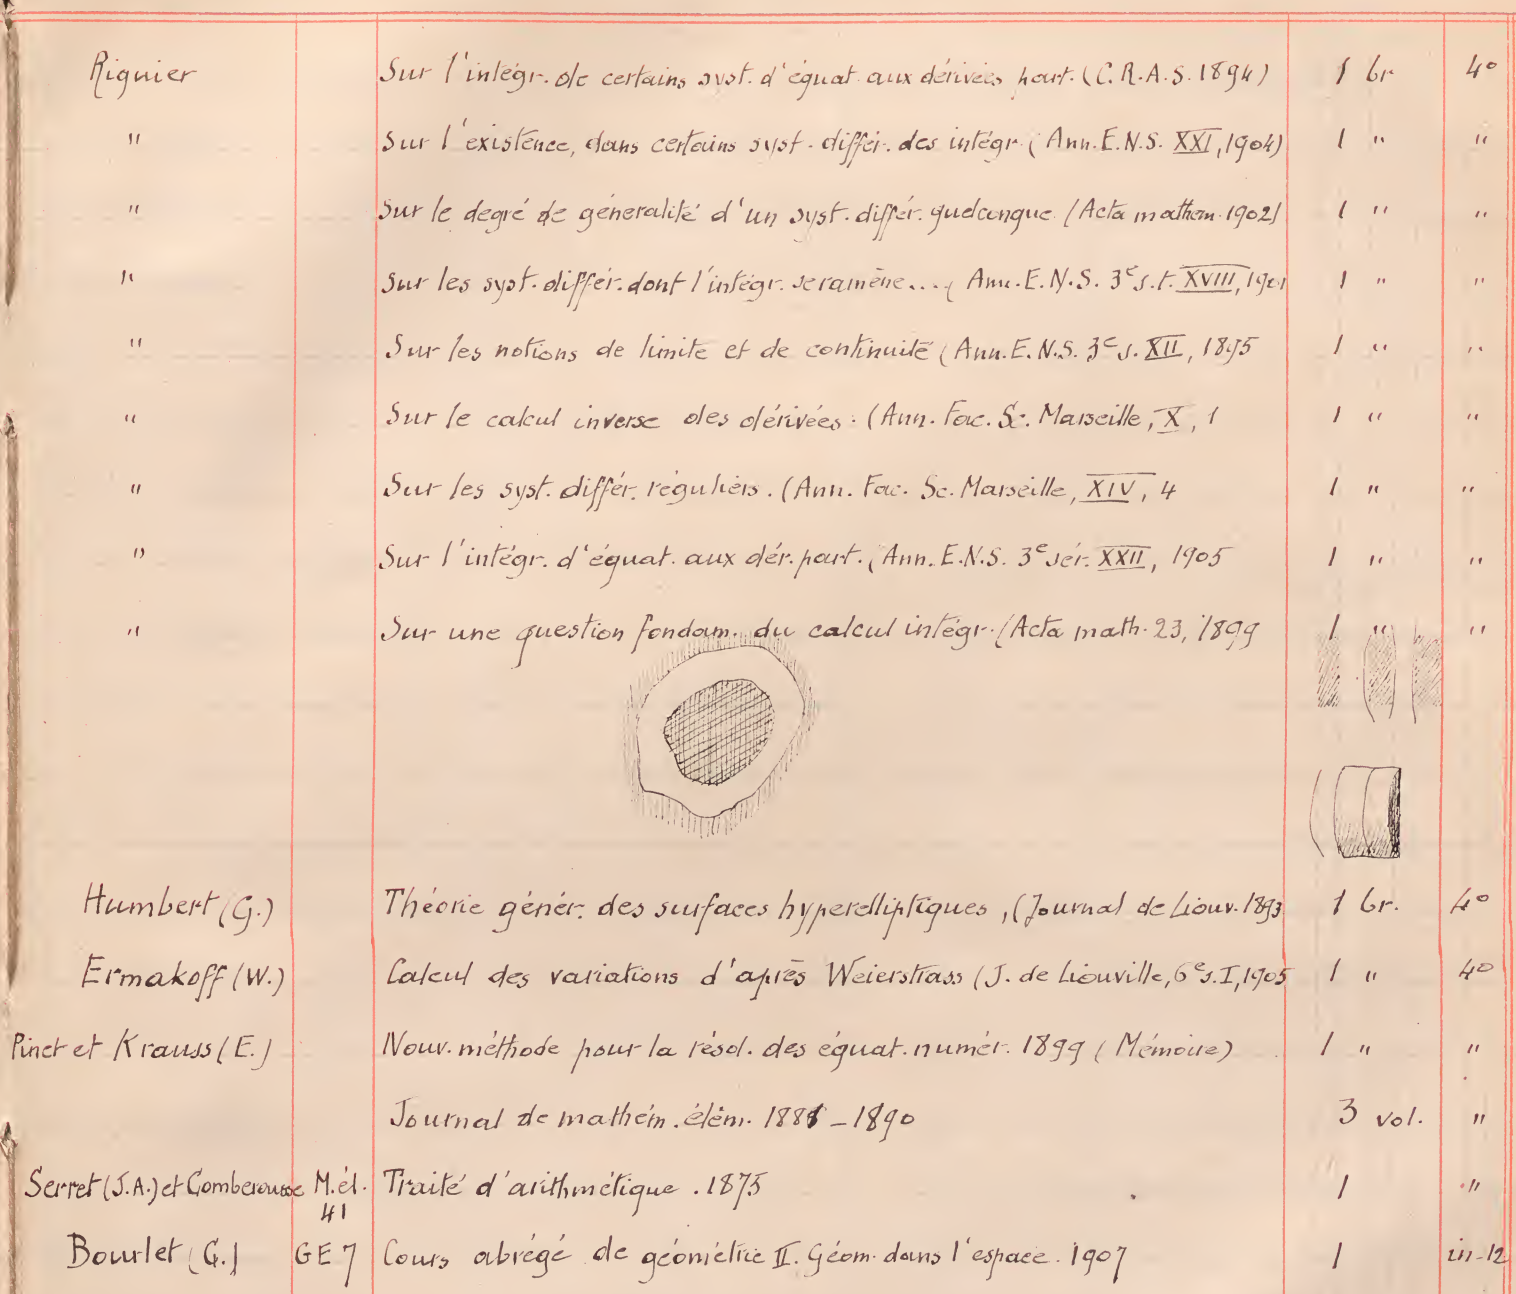 Riquier Sur l'intégr. de certains syst. d'équat. aux dérivées part. (C.R.A.S. 1894) 1 br 4°
" Sur l'existence, dans certains syst. différ. des intégr. (Ann. E.N.S. XXI, 1904) 1 " "
" Sur le degré de généralité d'un syst. différ. quelconque (Acta mathem. 1902) 1 " "
" Sur les syst. différ. dont l'intégr. se ramène... (Ann. E.N.S. 3e s. t. XVIII, 1901 1 " "
" Sur les notions de limite et de continuité (Ann. E.N.S. 3e s. XII, 1895 1 " "
" Sur le calcul inverse des dérivées. (Ann. Fac. Sc. Marseille, X, 1 1 " "
" Sur les syst. différ. réguliers. (Ann. Fac. Sc. Marseille, XIV, 4 1 " "
" Sur l'intégr. d'équat. aux dér. part. (Ann. E.N.S. 3e sér. XXII, 1905 1 " "
" Sur une question fondam. du calcul intégr. (Acta math. 23, 1899 1 " "
Humbert (G.) Théorie génér. des surfaces hyperelliptiques, (Journal de Liouv. 1893 1 br. 4°
Ermakoff (W.) Calcul des variations d'après Weierstrass (J. de Liouville, 6e s. I, 1905 1 " 4°
Pinet et Krauss (E.) Nouv. méthode pour la résol. des équat. numér. 1899 (Mémoire) 1 " "
Journal de mathém. élém. 1888 - 1890 3 vol. "
Serret (J.A.) et Comberousse M.él. 41 Traité d'arithmétique. 1875 1 "
Bourlet (C.) GE 7 Cours abrégé de géométrie II. Géom. dans l'espace. 1907 1 in-12